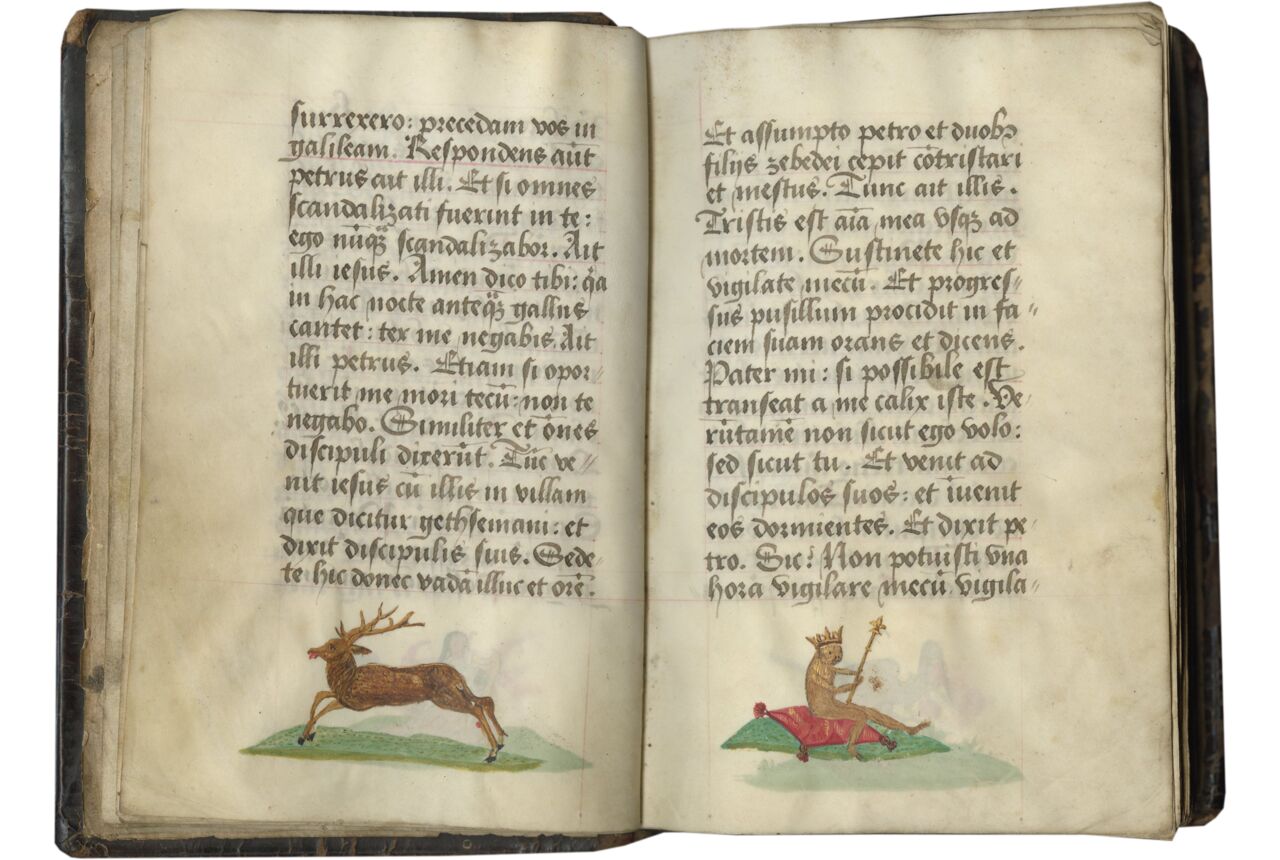 surrexero: precedam vos in
galileam. Respondens aūt
petrus ait illi. Et si omnes
scandalizati fuerint in te:
ego nūqȝ scandalizabor. Ait
illi iesus. Amen dico tibi: qa
in hac nocte anteqȝ gallus
cantet: ter me negabis. Ait
illi petrus. Etiam si opor//
tuerit me mori tecū: non te
negabo. Similiter et ōnes
discipuli dixerūt. Tūc ve//
nit iesus cū illis in villam
que dicitur gethsemani: et
dixit discipulis suis. Sede//
te hic donec vadā illuc et orē.
Et assumpto petro et duobꝰ
filijs zebedei cepit cōtristari
et mestus. Tunc ait illis.
Tristis est aīa mea vsqȝ ad
mortem. Sustinete hic et
vigilate mecū. Et progres//
sus pusillum procidit in fa//
ciem suam orans et dicens.
Pater mi: si possibile est
transeat a me calix iste. Ve//
rūtamē non sicut ego volo:
sed sicut tu. Et venit ad
discipulos suos: et īuenit
eos dormientes. Et dixit pe//
tro. Sic? Non potuisti vna
hora vigilare mecū. vigila//